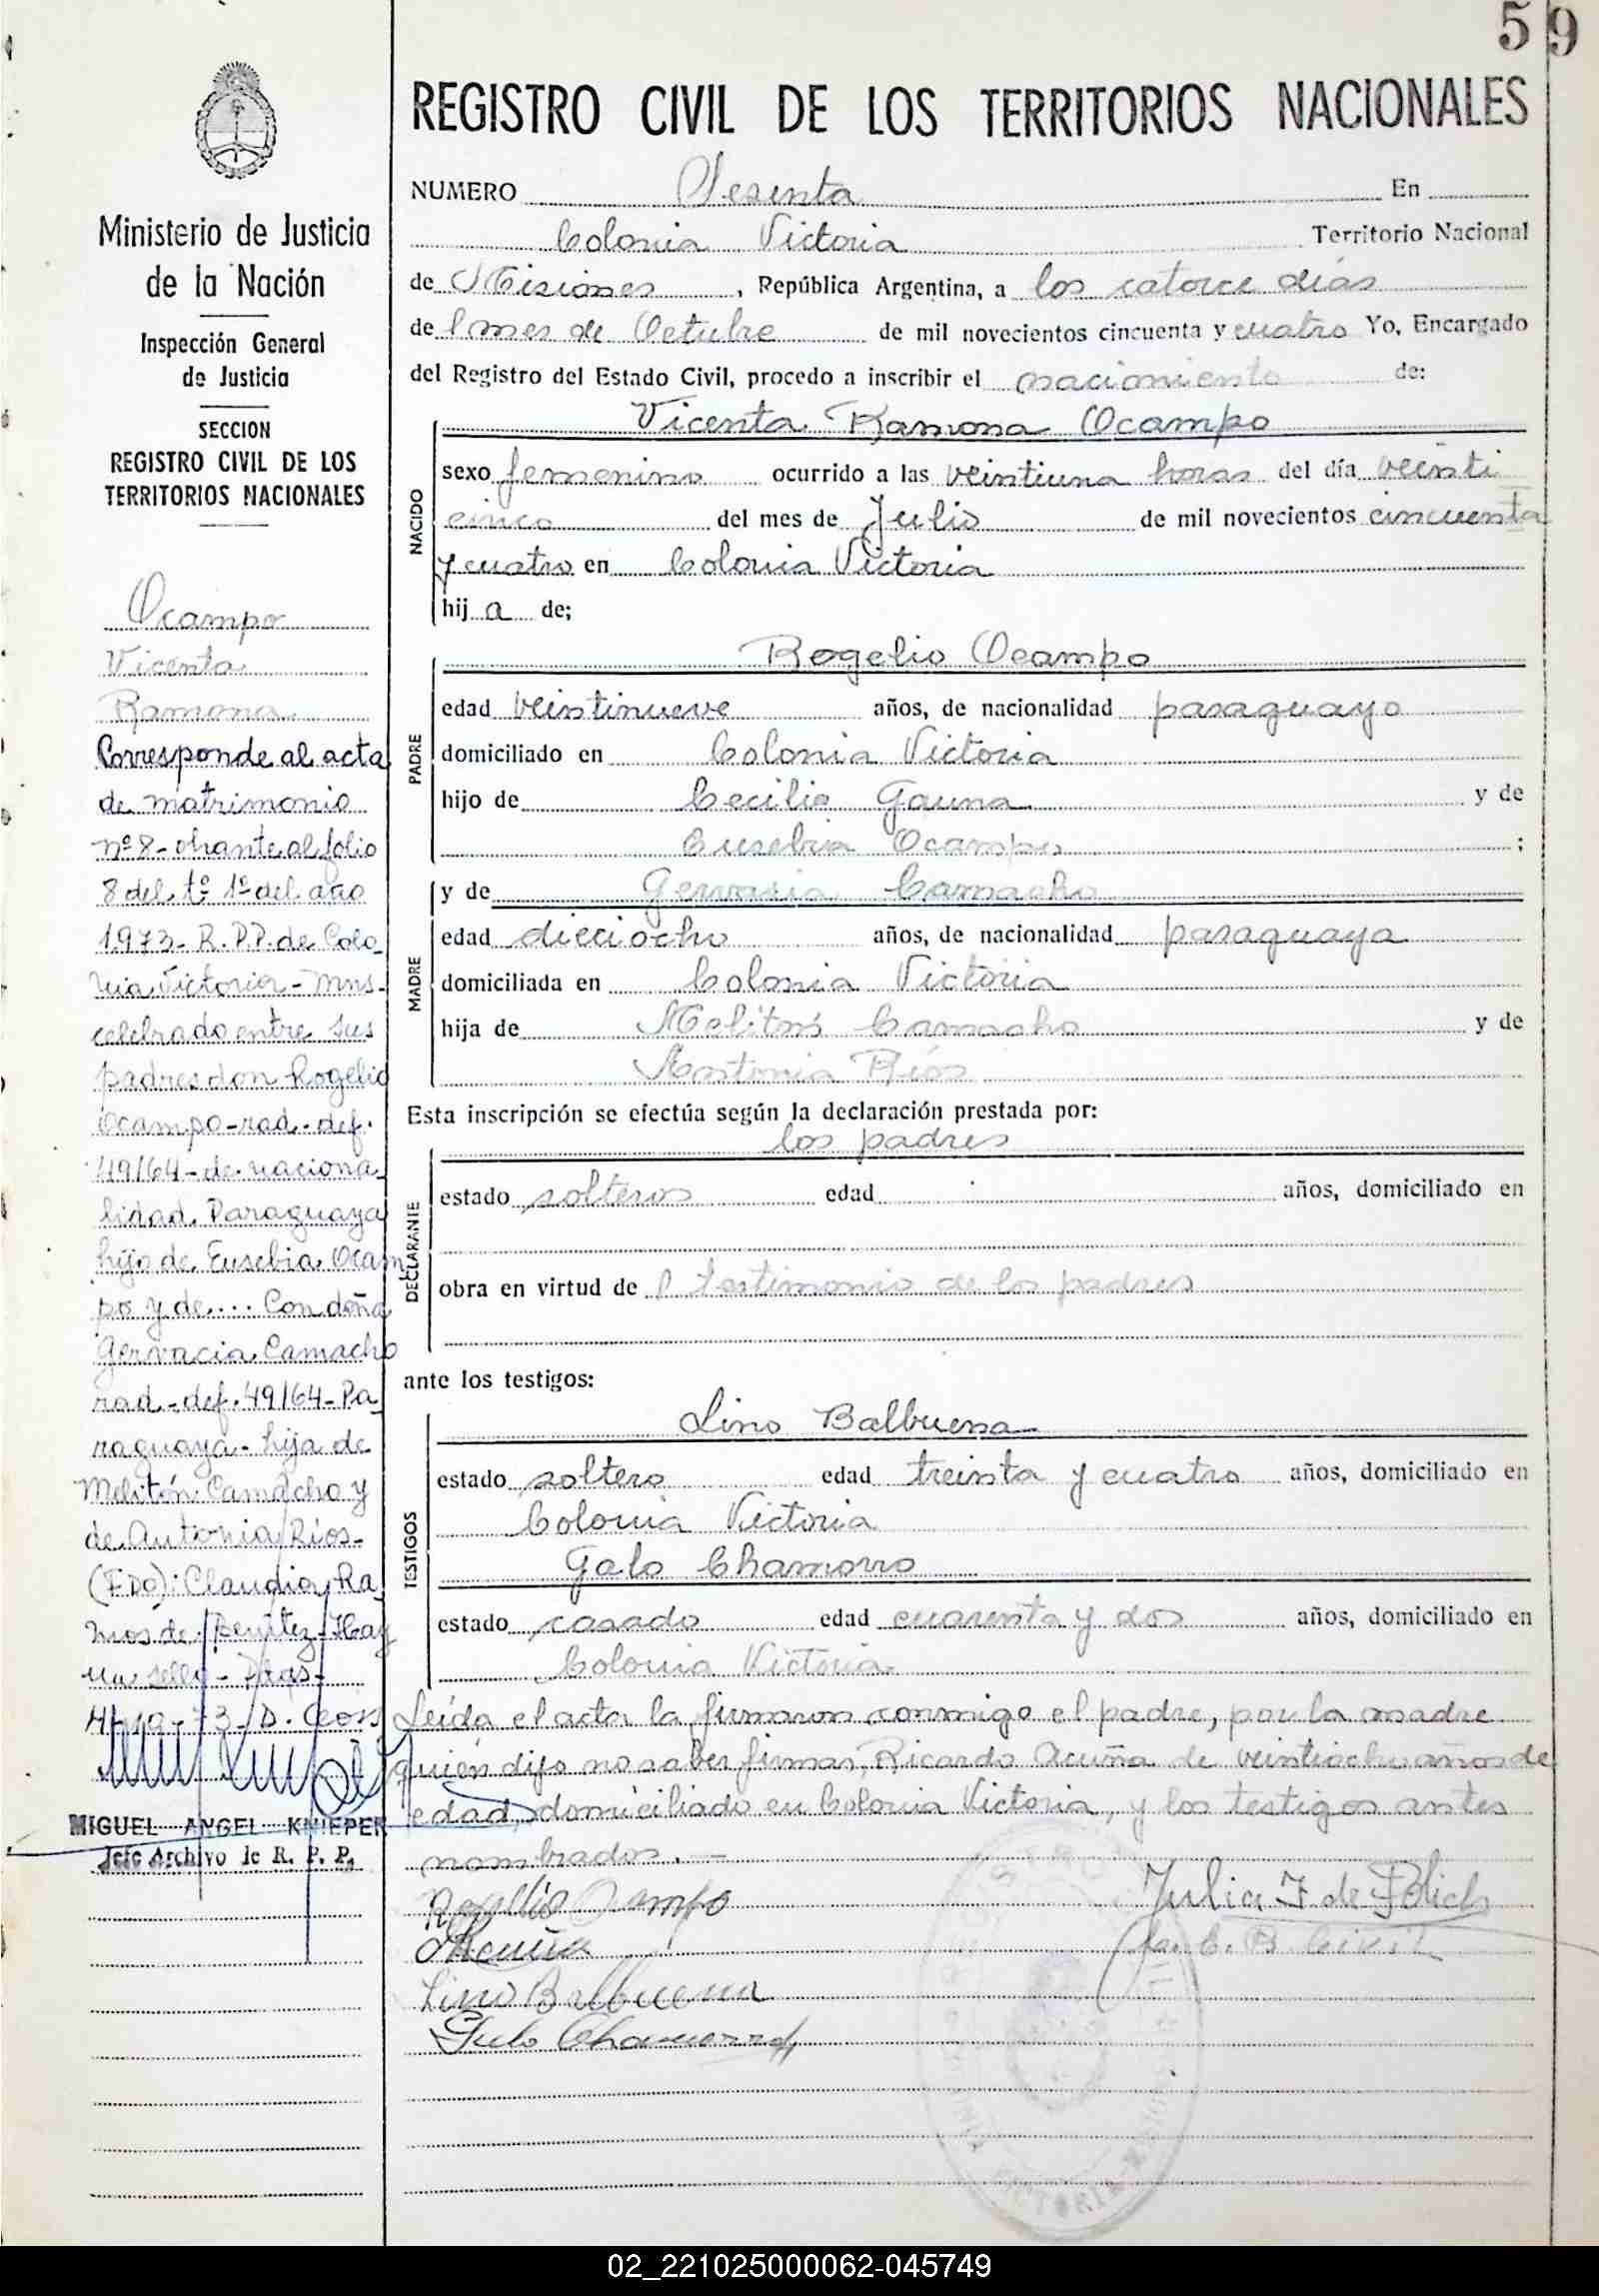 59
REGISTRO CIVIL DE LOS TERRITORIOS NACIONALES
Ministerio de Justicia
de la Nación
Inspección General
de Justicia
SECCION
REGISTRO CIVIL DE LOS
TERRITORIOS NACIONALES
Ocampo
Vicenta
Ramona
Corresponde al acta
de matrimonio
nº 8 - obrante al folio
8 del tº 1º del año
1973 - R.P.P. de Colo-
nia Victoria - Mns -
celebrado entre sus
padres don Rogelio
Ocampo - rad. def.
49/64 - de naciona-
lidad Paraguaya
hijo de Eusebia Ocam
po y de .... Con doña
Gervacia Camacho
rad - def. 49/64 - Pa
raguaya - hija de
Melitón Camacho y
de Antonia Ríos -
(FDO): Claudia Ra
mos de Benitez - Hay
un sello -
MIGUEL ANGEL KNIEPER
Jefe Archivo de R. P. P.
NUMERO Sesenta En
Colonia Victoria Territorio Nacional
de Misiones, República Argentina, a los catorce dias
del mes de Octubre de mil novecientos cincuenta y cuatro Yo, Encargado
del Registro del Estado Civil, procedo a inscribir el nacimiento de:
NACIDO
Vicenta Ramona Ocampo
sexo femenino ocurrido a las veintiuna horas del día veinti
cinco del mes de Julio de mil novecientos cincuenta
y cuatro en Colonia Victoria
hija de;
PADRE
Rogelio Ocampo
edad veintinueve años, de nacionalidad paraguayo
domiciliado en Colonia Victoria
hijo de Cecilio Gauna y de
Eusebia Ocampo ;
MADRE
y de Gervasia Camacho
edad dieciocho años, de nacionalidad paraguaya
domiciliada en Colonia Victoria
hija de Melitón Camacho y de
Antonia Ríos
Esta inscripción se efectúa según la declaración prestada por:
DECLARANTE
los padres
estado solteros edad años, domiciliado en
obra en virtud del testimonio de los padres
ante los testigos:
TESTIGOS
Lino Balbuena
estado soltero edad treinta y cuatro años, domiciliado en
Colonia Victoria
Galo Chamorro
estado casado edad cuarenta y dos años, domiciliado en
Colonia Victoria
Leída el acta la firmaron conmigo el padre, por la madre
quién dijo no saber firmar, Ricardo Acuña de veintiocho años de
edad, domiciliado en Colonia Victoria, y los testigos antes
nombrados. —
Rogelio Ocampo
RAcuña
Lino Balbuena
Galo Chamorro
Julia F. de Polich
02_221025000062-045749